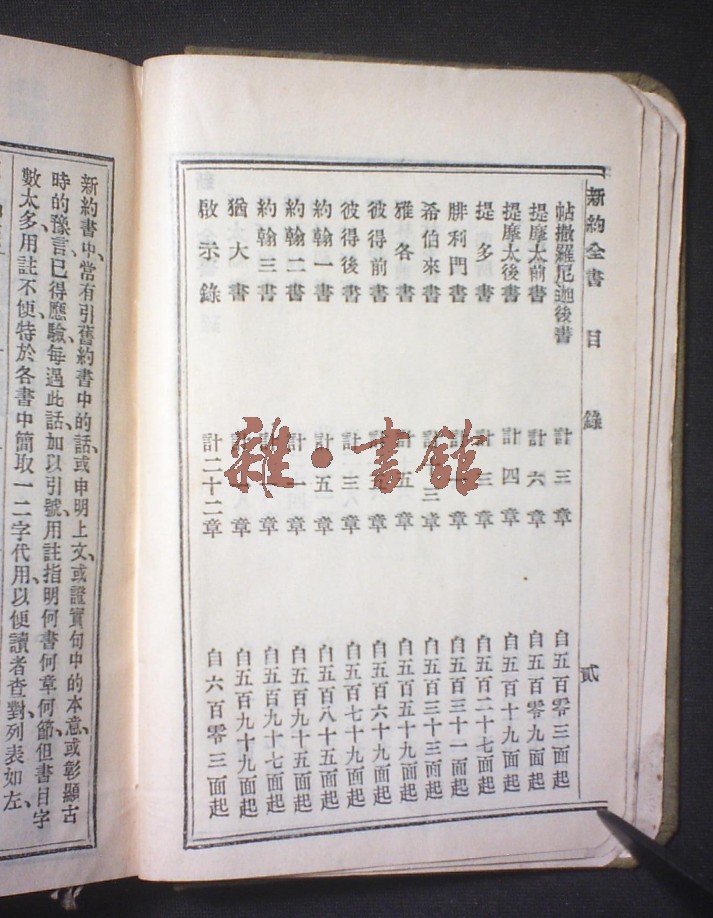 新約全書 目錄 貳
帖撒羅尼迦後書 計三章 自五百零三面起
提摩太前書 計六章 自五百零九面起
提摩太後書 計四章 自五百十九面起
提多書 計三章 自五百二十七面起
腓利門書 計章 自五百三十一面起
希伯來書 計十三章 自五百三十三面起
雅各書 計五章 自五百五十九面起
彼得前書 計五章 自五百六十九面起
彼得後書 計三章 自五百七十九面起
約翰一書 計五章 自五百八十五面起
約翰二書 計一章 自五百九十五面起
約翰三書 計章 自五百九十七面起
猶大書 計章 自五百九十九面起
啟示錄 計二十二章 自六百零三面起
雜·書館
新約書中、常有引舊約書中的話、或申明上文、或證實句中的本意、或彰顯古
時的豫言、已得應驗、每遇此話、加以引號、用註指明何書何章何節、但書目字
數太多、用註不便、特於各書中簡取一二字代用、以便讀者查對、列表如左、